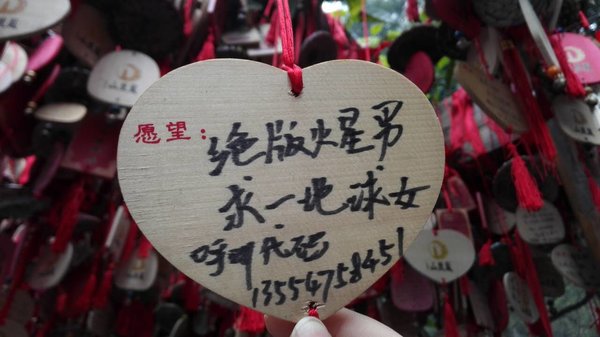 愿望：
绝版火星男
求一地球女
呼叫代码
13554758451